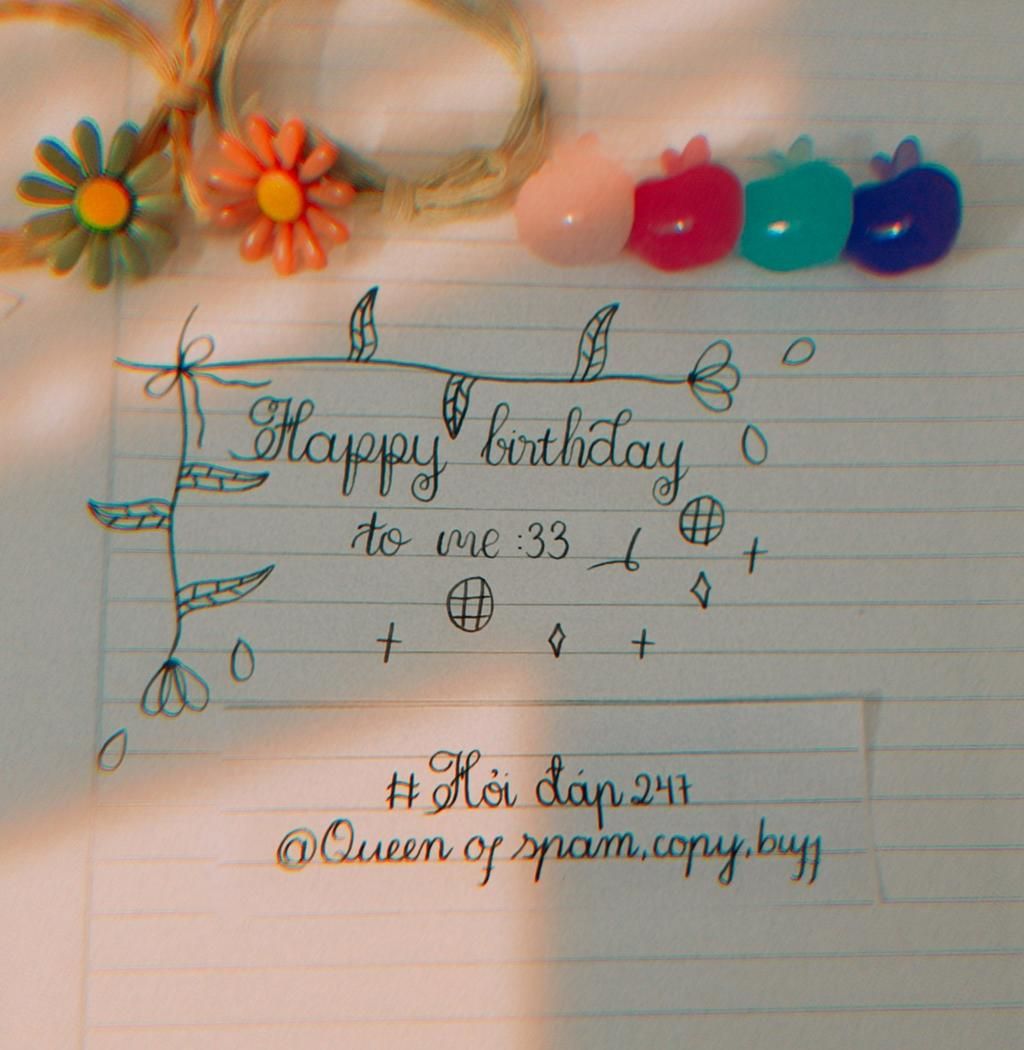 Happy birthday
to me :33
#Hỏi đáp 247
@Queen of spam,copy,buff